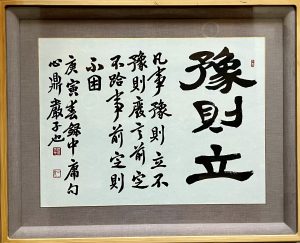 豫則立
凡事豫則立不
豫則廢言前定
不跲事前定則
不困
庚寅春錄中庸句
心鼎嚴子也